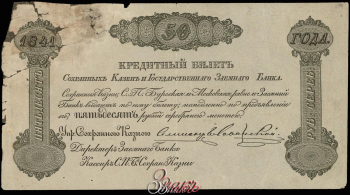 50
1841 ГОДА.
КРЕДИТНЫЙ БИЛЕТЪ
Сохранныхъ Казенъ и Государственнаго Заемнаго Банка.
Сохранныя Казны, С.П.Бургская и Московская, равно и Заемный
Банкъ по сему билету, немедленно по предъявленіи
пятьдесятъ рублей серебряной монетой.
Упр. Сохранной Казною
Директоръ Заемнаго Банка
Кассиръ С.П.Б. Сохран. Казны
ПЯТЬДЕСЯТЪ
РУБ. СЕРЕБР.
Знакъ